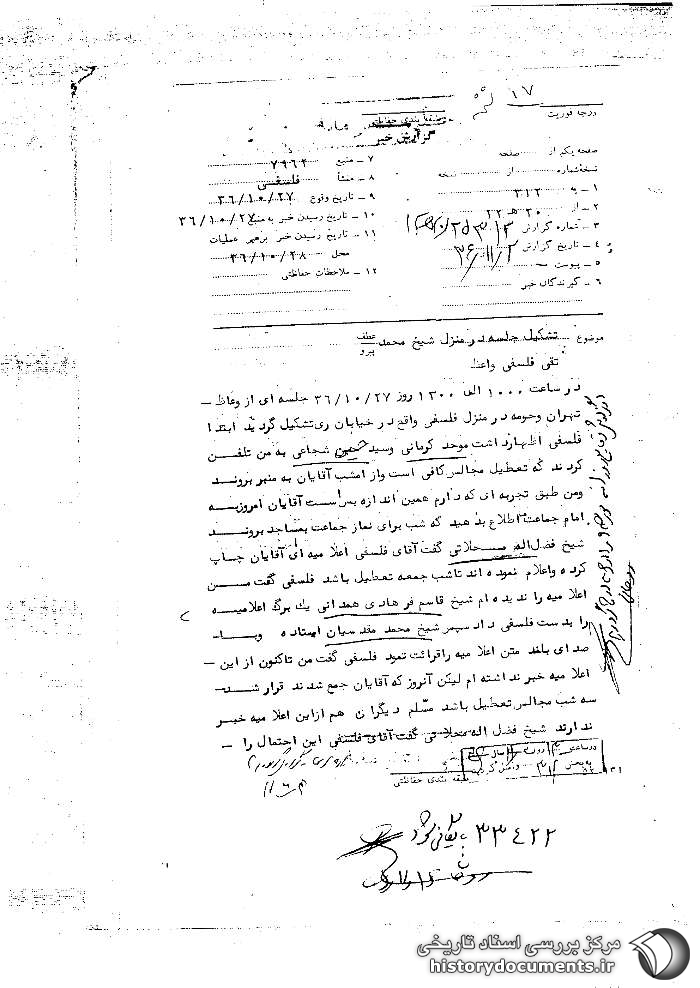 ۱۷
درجه فوریت
طبقه بندی حفاظتی
گزارش خبر
صفحه یکم از صفحه
نسخه شماره از نسخه
۱ - به ۳۱۲
۲ - از ۲۰ هـ ۲۲
۳ - شماره گزارش
۴ - تاریخ گزارش ۳۶/۱۱/۲
۵ - پیوست
۶ - گیرندگان خبر
۷ - منبع ۷۹۶۲
۸ - منشأ فلسفی
۹ - تاریخ وقوع ۳۶/۱۰/۲۷
۱۰ - تاریخ رسیدن خبر به منبع ۳۶/۱۰/۲۷
۱۱ - تاریخ رسیدن خبر برهبر عملیات
محل ۳۶/۱۰/۲۸
۱۲ - ملاحظات حفاظتی
موضوع تشکیل جلسه در منزل شیخ محمد عطف پیرو
تقی فلسفی واعظ
در ساعت ۱۰۰۰ الی ۱۳۰۰ روز ۳۶/۱۰/۲۷ جلسه ای از وعاظ -
تهران وحومه در منزل فلسفی واقع در خیابان ری تشکیل گردید ابتدا
فلسفی اظهار داشت موحد کرمانی وسید حسین شجاعی به من تلفن
کردند که تعطیل مجالس کافی است واز امشب آقایان به منبر بروند
ومن طبق تجربه ای که دارم همین اندازه بس است آقایان امروز به
امام جماعت اطلاع بدهید که شب برای نماز جماعت بمساجد بروند
شیخ فضل اله محلاتی گفت آقای فلسفی اعلامیه ای آقایان چاپ
کرده واعلام نموده اند تا شب جمعه تعطیل باشد فلسفی گفت من
اعلامیه را ندیده ام شیخ قاسم فرهادی همدانی یک برگ اعلامیه
را بدست فلسفی داد سپس شیخ محمد مقدسیان ایستاده وبا -
صدای بلند متن اعلامیه را قرائت نمود فلسفی گفت من تاکنون از این -
اعلامیه خبر نداشته ام لیکن آنروز که آقایان جمع شدند قرار شد -
سه شب مجالس تعطیل باشد مسلم دیگران هم از این اعلامیه خبر
ندارند شیخ فضل اله محلاتی گفت آقای فلسفی این احتمال را -
طبقه بندی حفاظتی
۳۳۴۲۲
مرکز بررسی اسناد تاریخی
historydocuments.ir